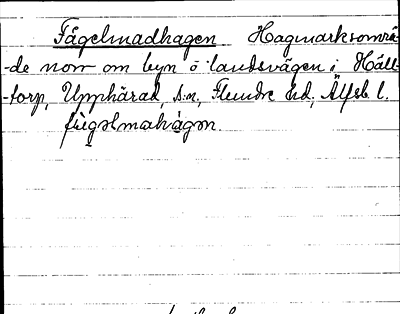 Fågelmadhagen Hagmarksområ-
-de norr om byn ö landsvägen i Håll-
-torp, Upphärad, s:n, Flundre hd, Älfsb. l.
fùgəlmahàgən.